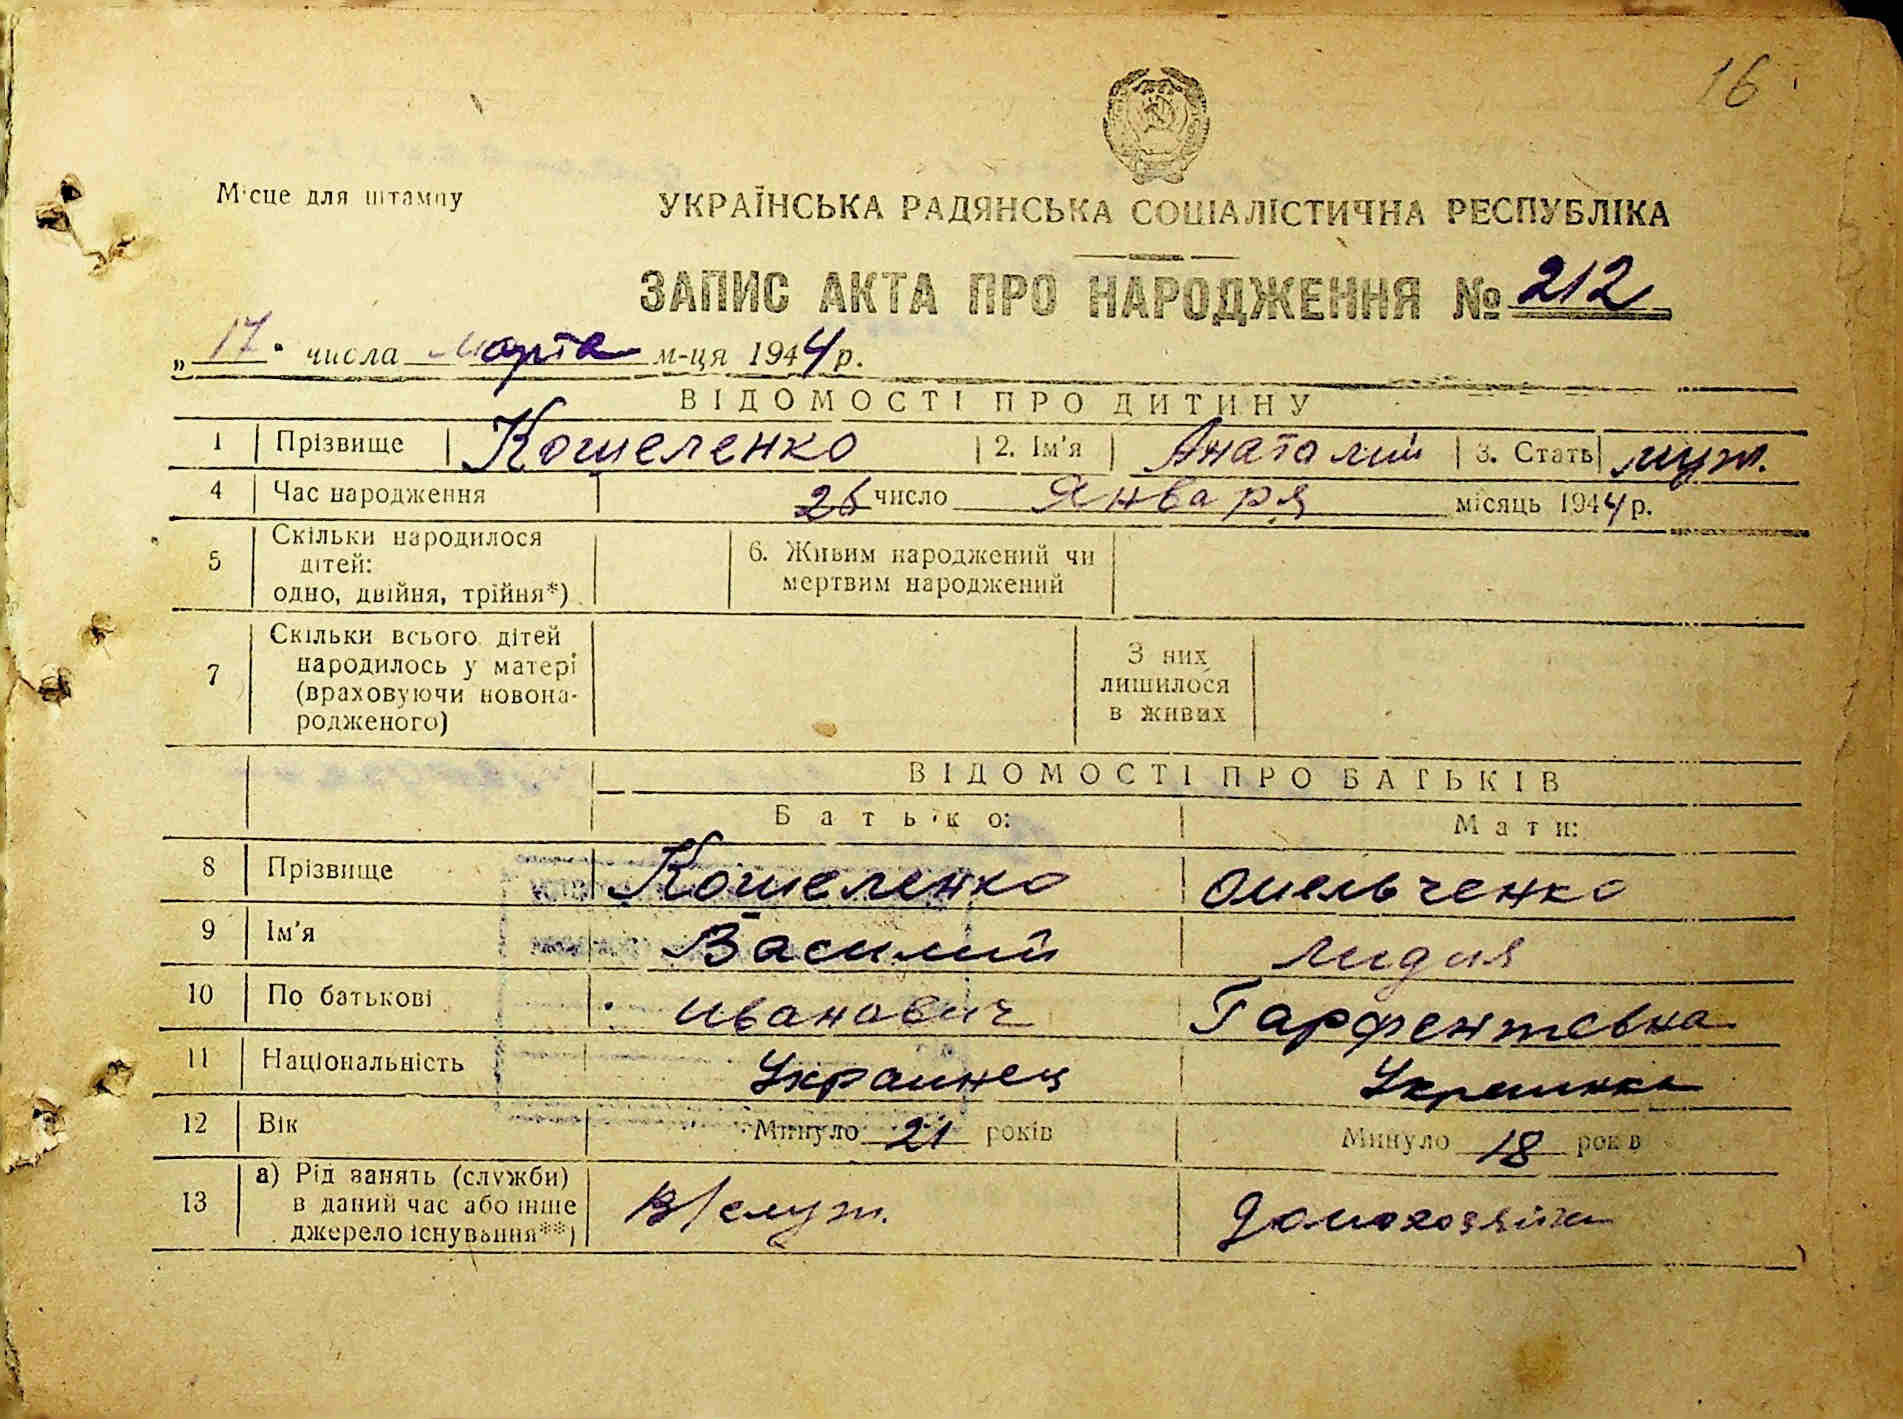 16
Місце для штампу
УКРАЇНСЬКА РАДЯНСЬКА СОЦІАЛІСТИЧНА РЕСПУБЛІКА
ЗАПИС АКТА ПРО НАРОДЖЕННЯ № 212
„17" числа марта м-ця 1944 р.
ВІДОМОСТІ ПРО ДИТИНУ
1 Прізвище Кошеленко 2. Ім'я Анатолий 3. Стать муж.
4 Час народження 26 число Января місяць 1944 р.
5 Скільки народилося дітей: одно, двійня, трійня*) 6. Живим народжений чи мертвим народжений
7 Скільки всього дітей народилось у матері (враховуючи новонародженого) З них лишилося в живих
ВІДОМОСТІ ПРО БАТЬКІВ
Батько: Мати:
8 Прізвище Кошеленко Омельченко
9 Ім'я Василий Лидия
10 По батькові Иванович Парфентевна
11 Національність Украинец Украинка
12 Вік Минуло 21 років Минуло 18 років
13 а) Рід занять (служби) в даний час або інше джерело існування**) в/служ. домохозяйка